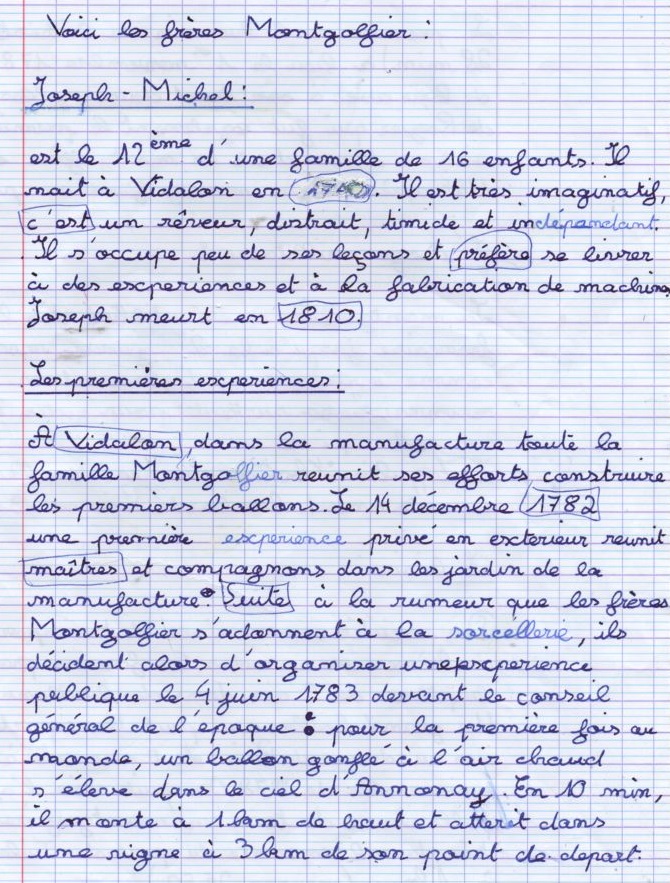 Voici les frères Montgolfier :
Joseph - Michel :
est le 12ème d'une famille de 16 enfants. Il
nait à Vidalon en 1740. Il est très imaginatif,
c'est un rêveur, distrait, timide et indépendant.
Il s'occupe peu de ses leçons et préfère se livrer
à des experiences et à la fabrication de machines
Joseph meurt en 1810.
Les premières experiences :
À Vidalon, dans la manufacture toute la
famille Montgolfier reunit ses efforts construire
les premiers ballons. Le 14 décembre 1782
une première experience privé en exterieur reunit
maîtres et compagnons dans les jardin de la
manufacture. Suite à la rumeur que les frères
Montgolfier s'adonnent à la sorcellerie, ils
décident alors d'organiser une experience
publique le 4 juin 1783 devant le conseil
général de l'époque : pour la première fois au
monde, un ballon gonflé à l'air chaud
s'élève dans le ciel d'Annonay. En 10 min,
il monte à 1 km de haut et atterit dans
une vigne à 3 km de son point de depart.